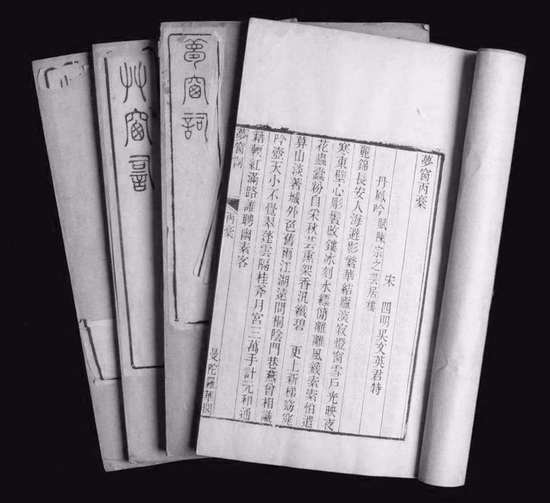 夢窗丙藁
宋 四明吳文英君特
丹鳳吟賦陳宗之芸居樓
麗錦長安人海避影繁華結廬淡寂燈窗雪戶光映夜
寒東壁心彫鬢改鏤冰刻水縹簡離離風籤索索怕遣
花蟲蠹粉自采秋芸熏架香汎纖碧 更上新梯窈窕
暮山淡著城外色舊雨江湖遠問桐陰門巷燕曾相識
吟壺天小不覺翠蓬雲隔桂斧月宮三萬手計元和通
籍輭紅滿路誰聘幽素客
夢窗詞 丙藁
曼陀羅華閣
夢窗詞
艸窗詞